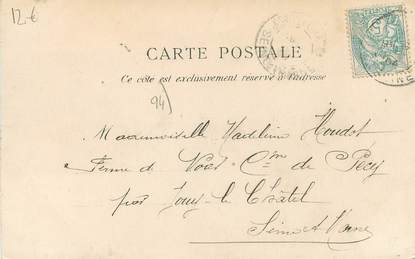 12 €
CARTE POSTALE
Ce côté est exclusivement réservé à l'adresse
94
Mademoiselle Madeleine Houdot
Ferme de Voes - Cne de Pécy
par Jouy-le-Châtel
Seine et Marne